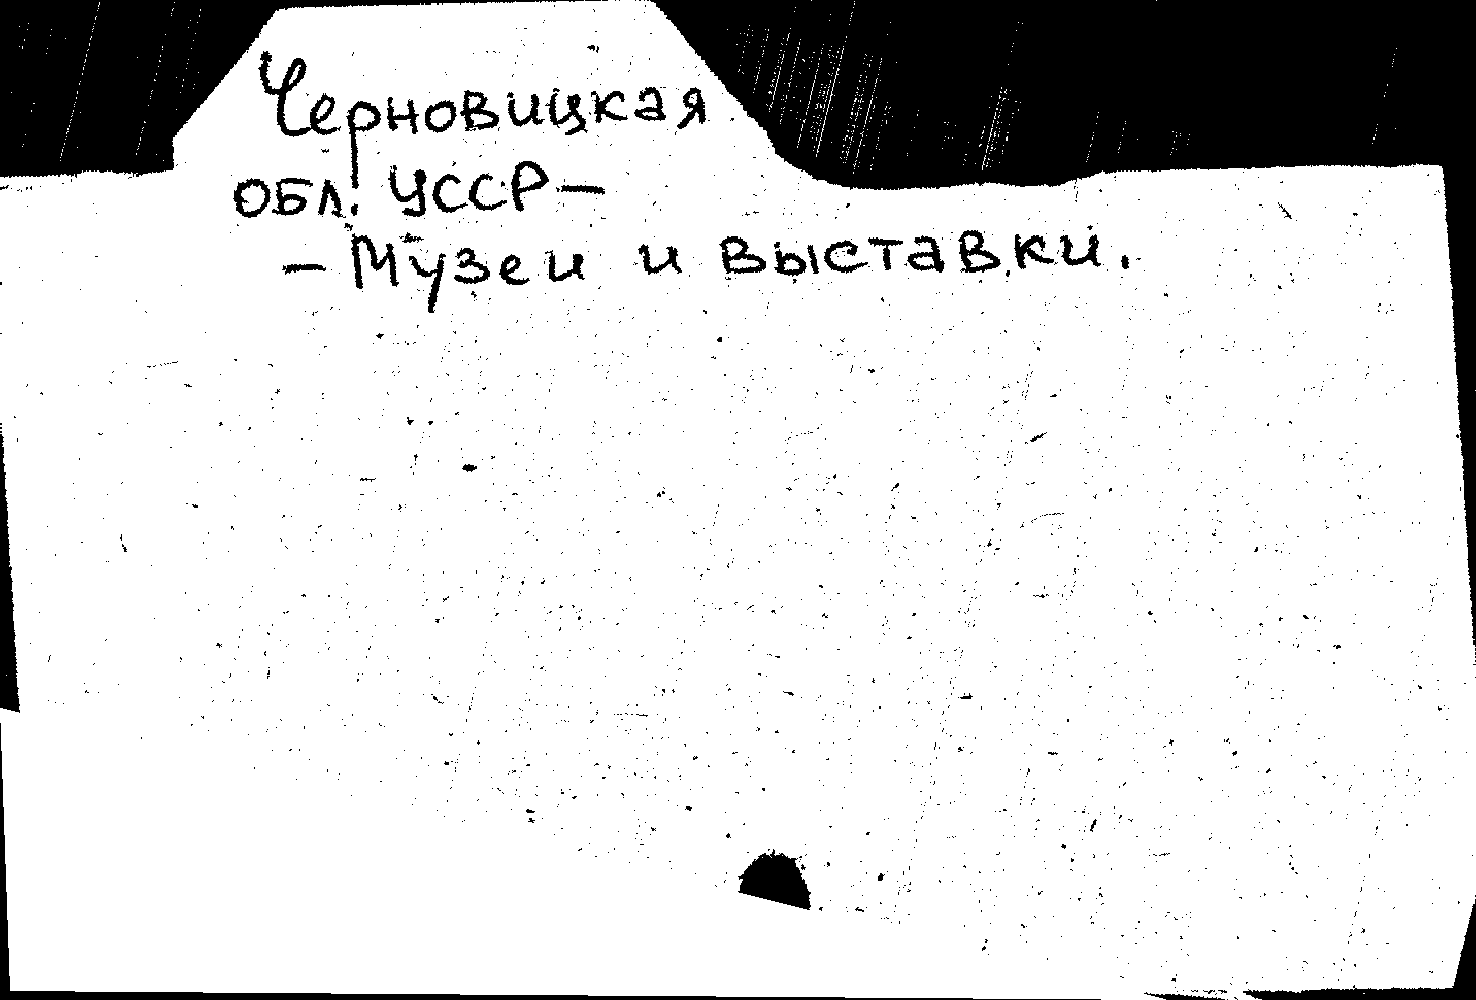 Черновицкая
обл. УССР –
– Музеи и выставки.